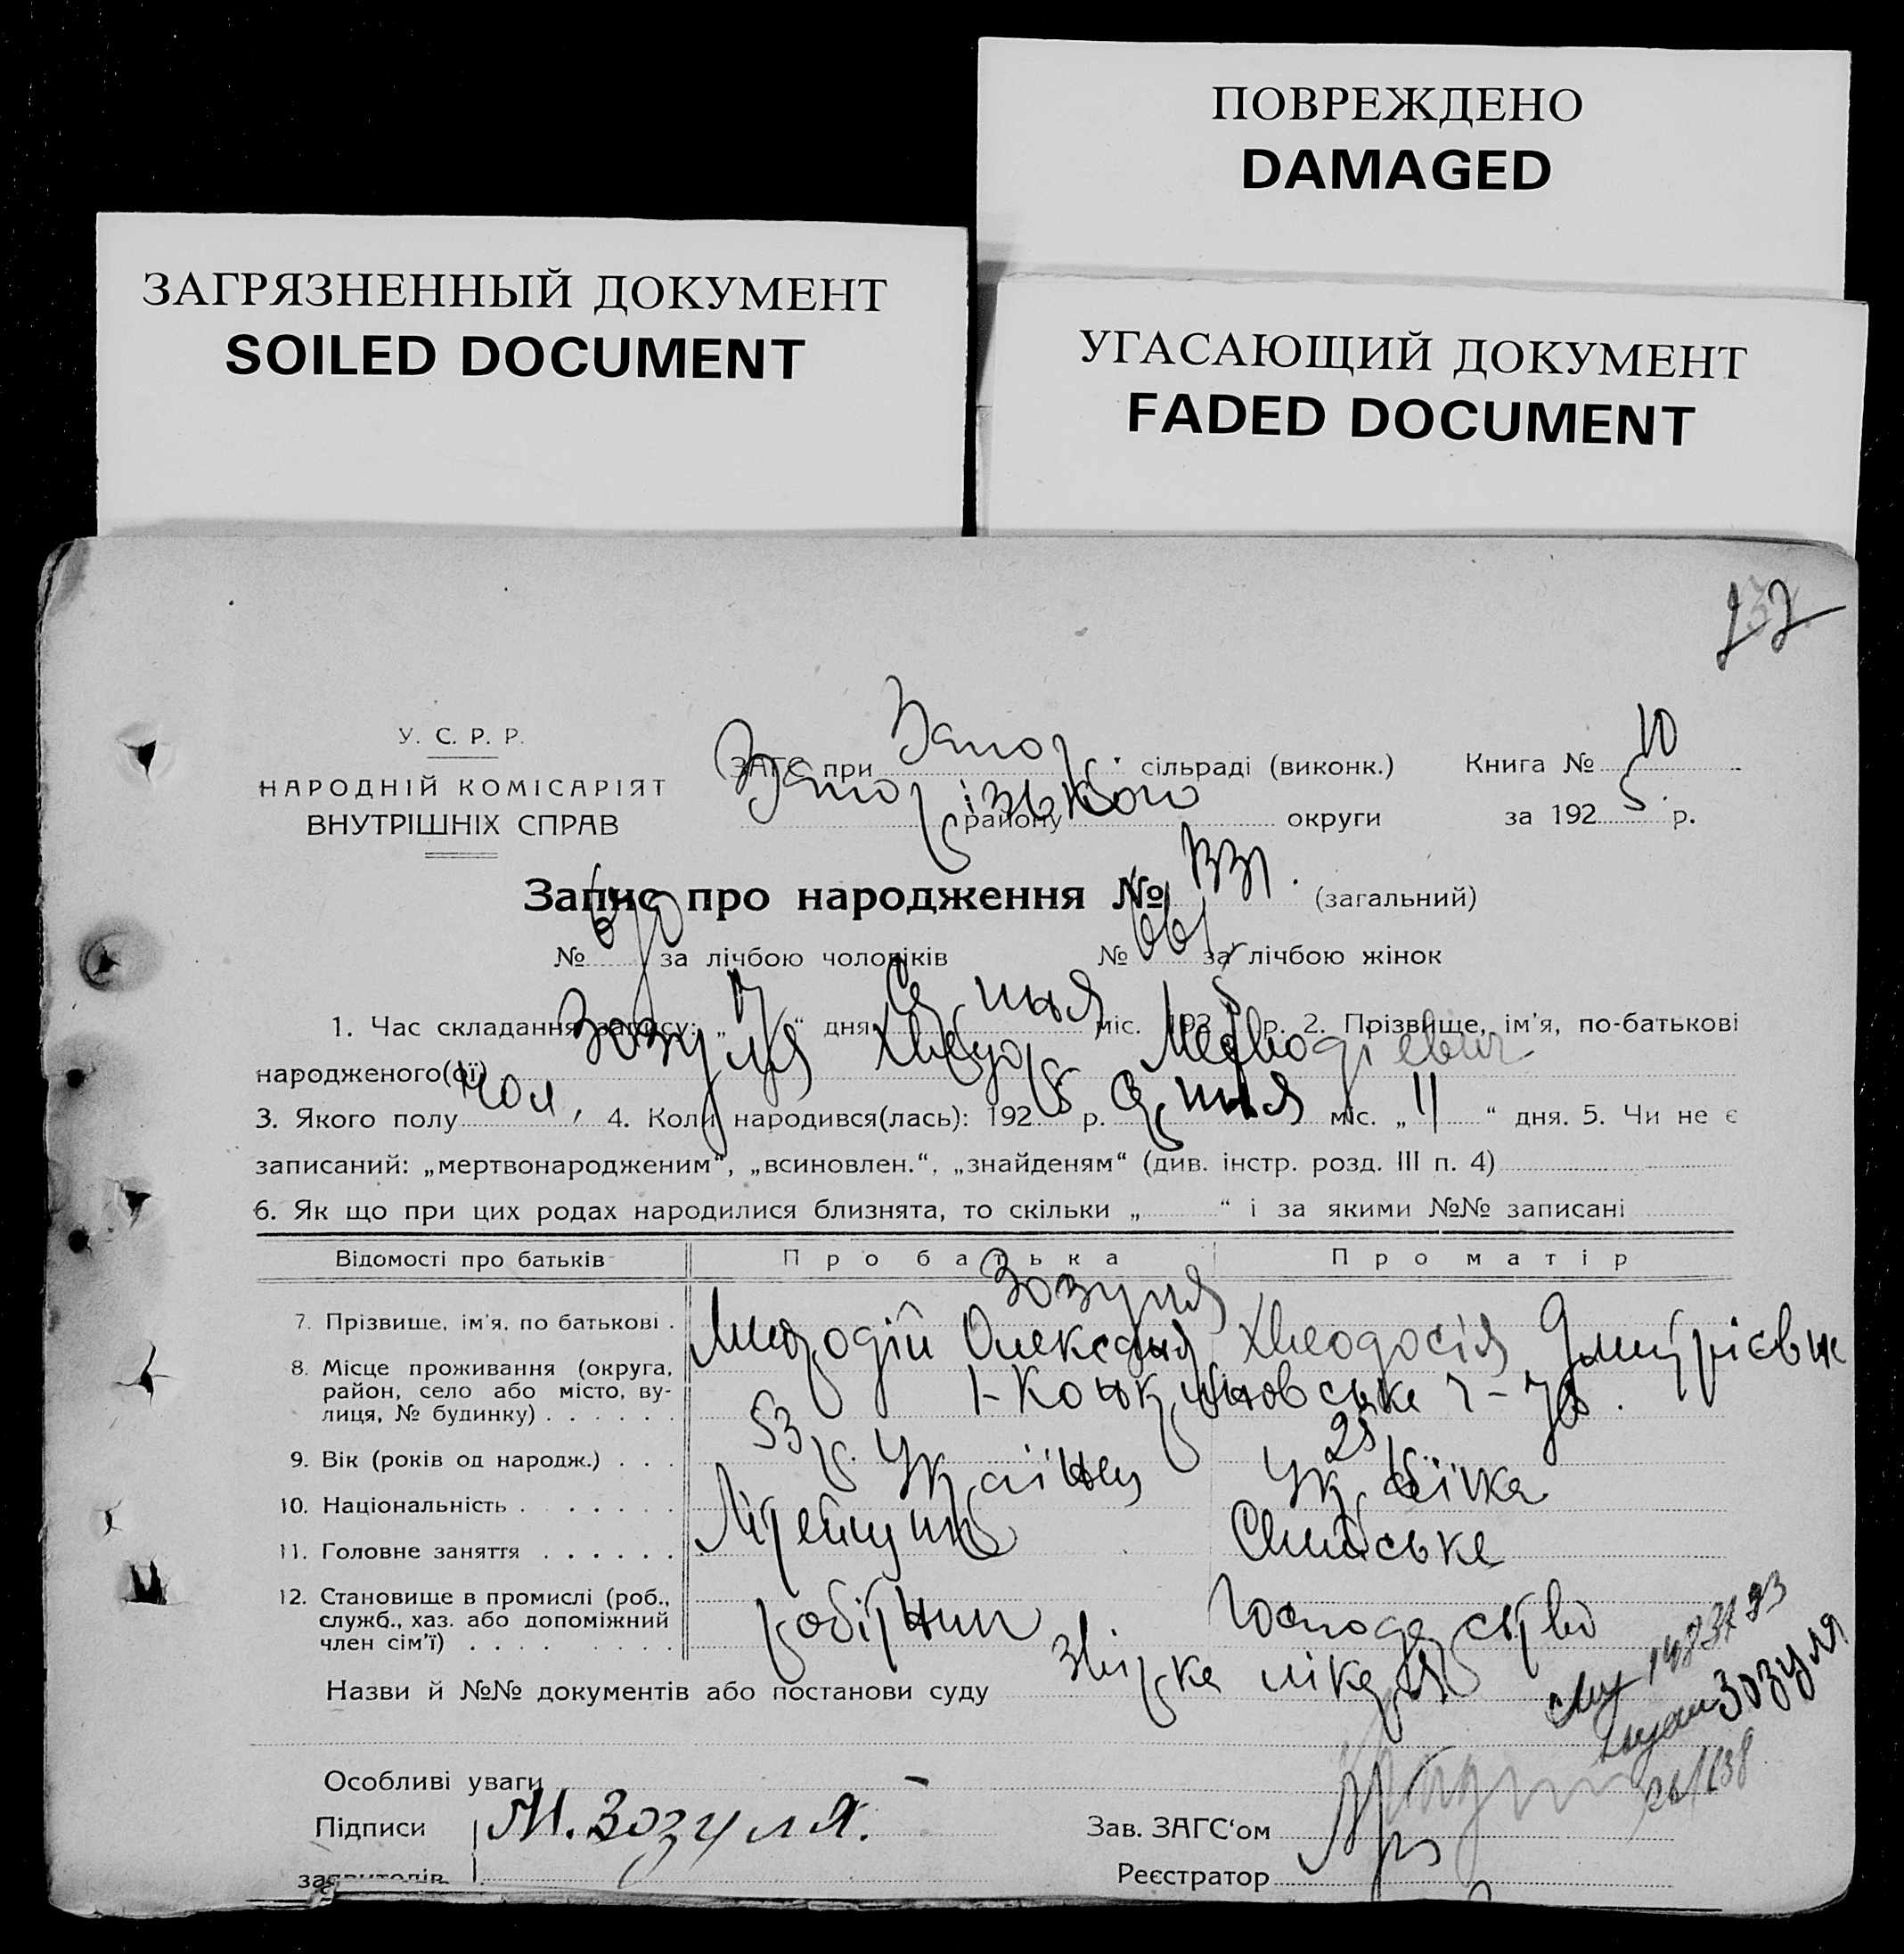 ПОВРЕЖДЕНО
DAMAGED
ЗАГРЯЗНЕННЫЙ ДОКУМЕНТ
SOILED DOCUMENT
УГАСАЮЩИЙ ДОКУМЕНТ
FADED DOCUMENT
У. С. Р. Р.
НАРОДНІЙ КОМІСАРІЯТ
ВНУТРІШНІХ СПРАВ
ЗАГС при Запор. сільраді (виконк.) Книга № 10
Запорізького району округи за 1925 р.
Запис про народження № 1331. (загальний)
№ 670 за лічбою чоловіків № 661 за лічбою жінок
1. Час складання запису: „17“ дня Серпня міс. 1925 р. 2. Прізвище, ім'я, по-батькові
народженого(ої) Зозуля Хведор Мефодієвич
3. Якого полу чол. 4. Коли народився(лась): 1925 р. Серпня міс. „11“ дня. 5. Чи не є
записаний: „мертвонародженим“, „всиновлен.“, „знайденям“ (див. інстр. розд. III п. 4)
6. Як що при цих родах народилися близнята, то скільки „ “ і за якими №№ записані
Відомості про батьків Про батька Про матір
Зозуля
7. Прізвище, ім'я, по батькові . Олександр
8. Місце проживання (округа,
район, село або місто, ву-
лиця, № будинку) . . . . . .
9. Вік (років од народж.) . . . 53 р. 28
10. Національність . . . . . . . Українец Українка
11. Головне заняття . . . . . . Сільське
12. Становище в промислі (роб.,
служб., хаз. або допоміжний
член сім'ї) . . . . . . . . . робітник господарство
Назви й №№ документів або постанови суду лікаря
Зозуля
Особливі уваги –
Підписи М. Зозуля. Зав. ЗАГС'ом
заявителів Реєстратор